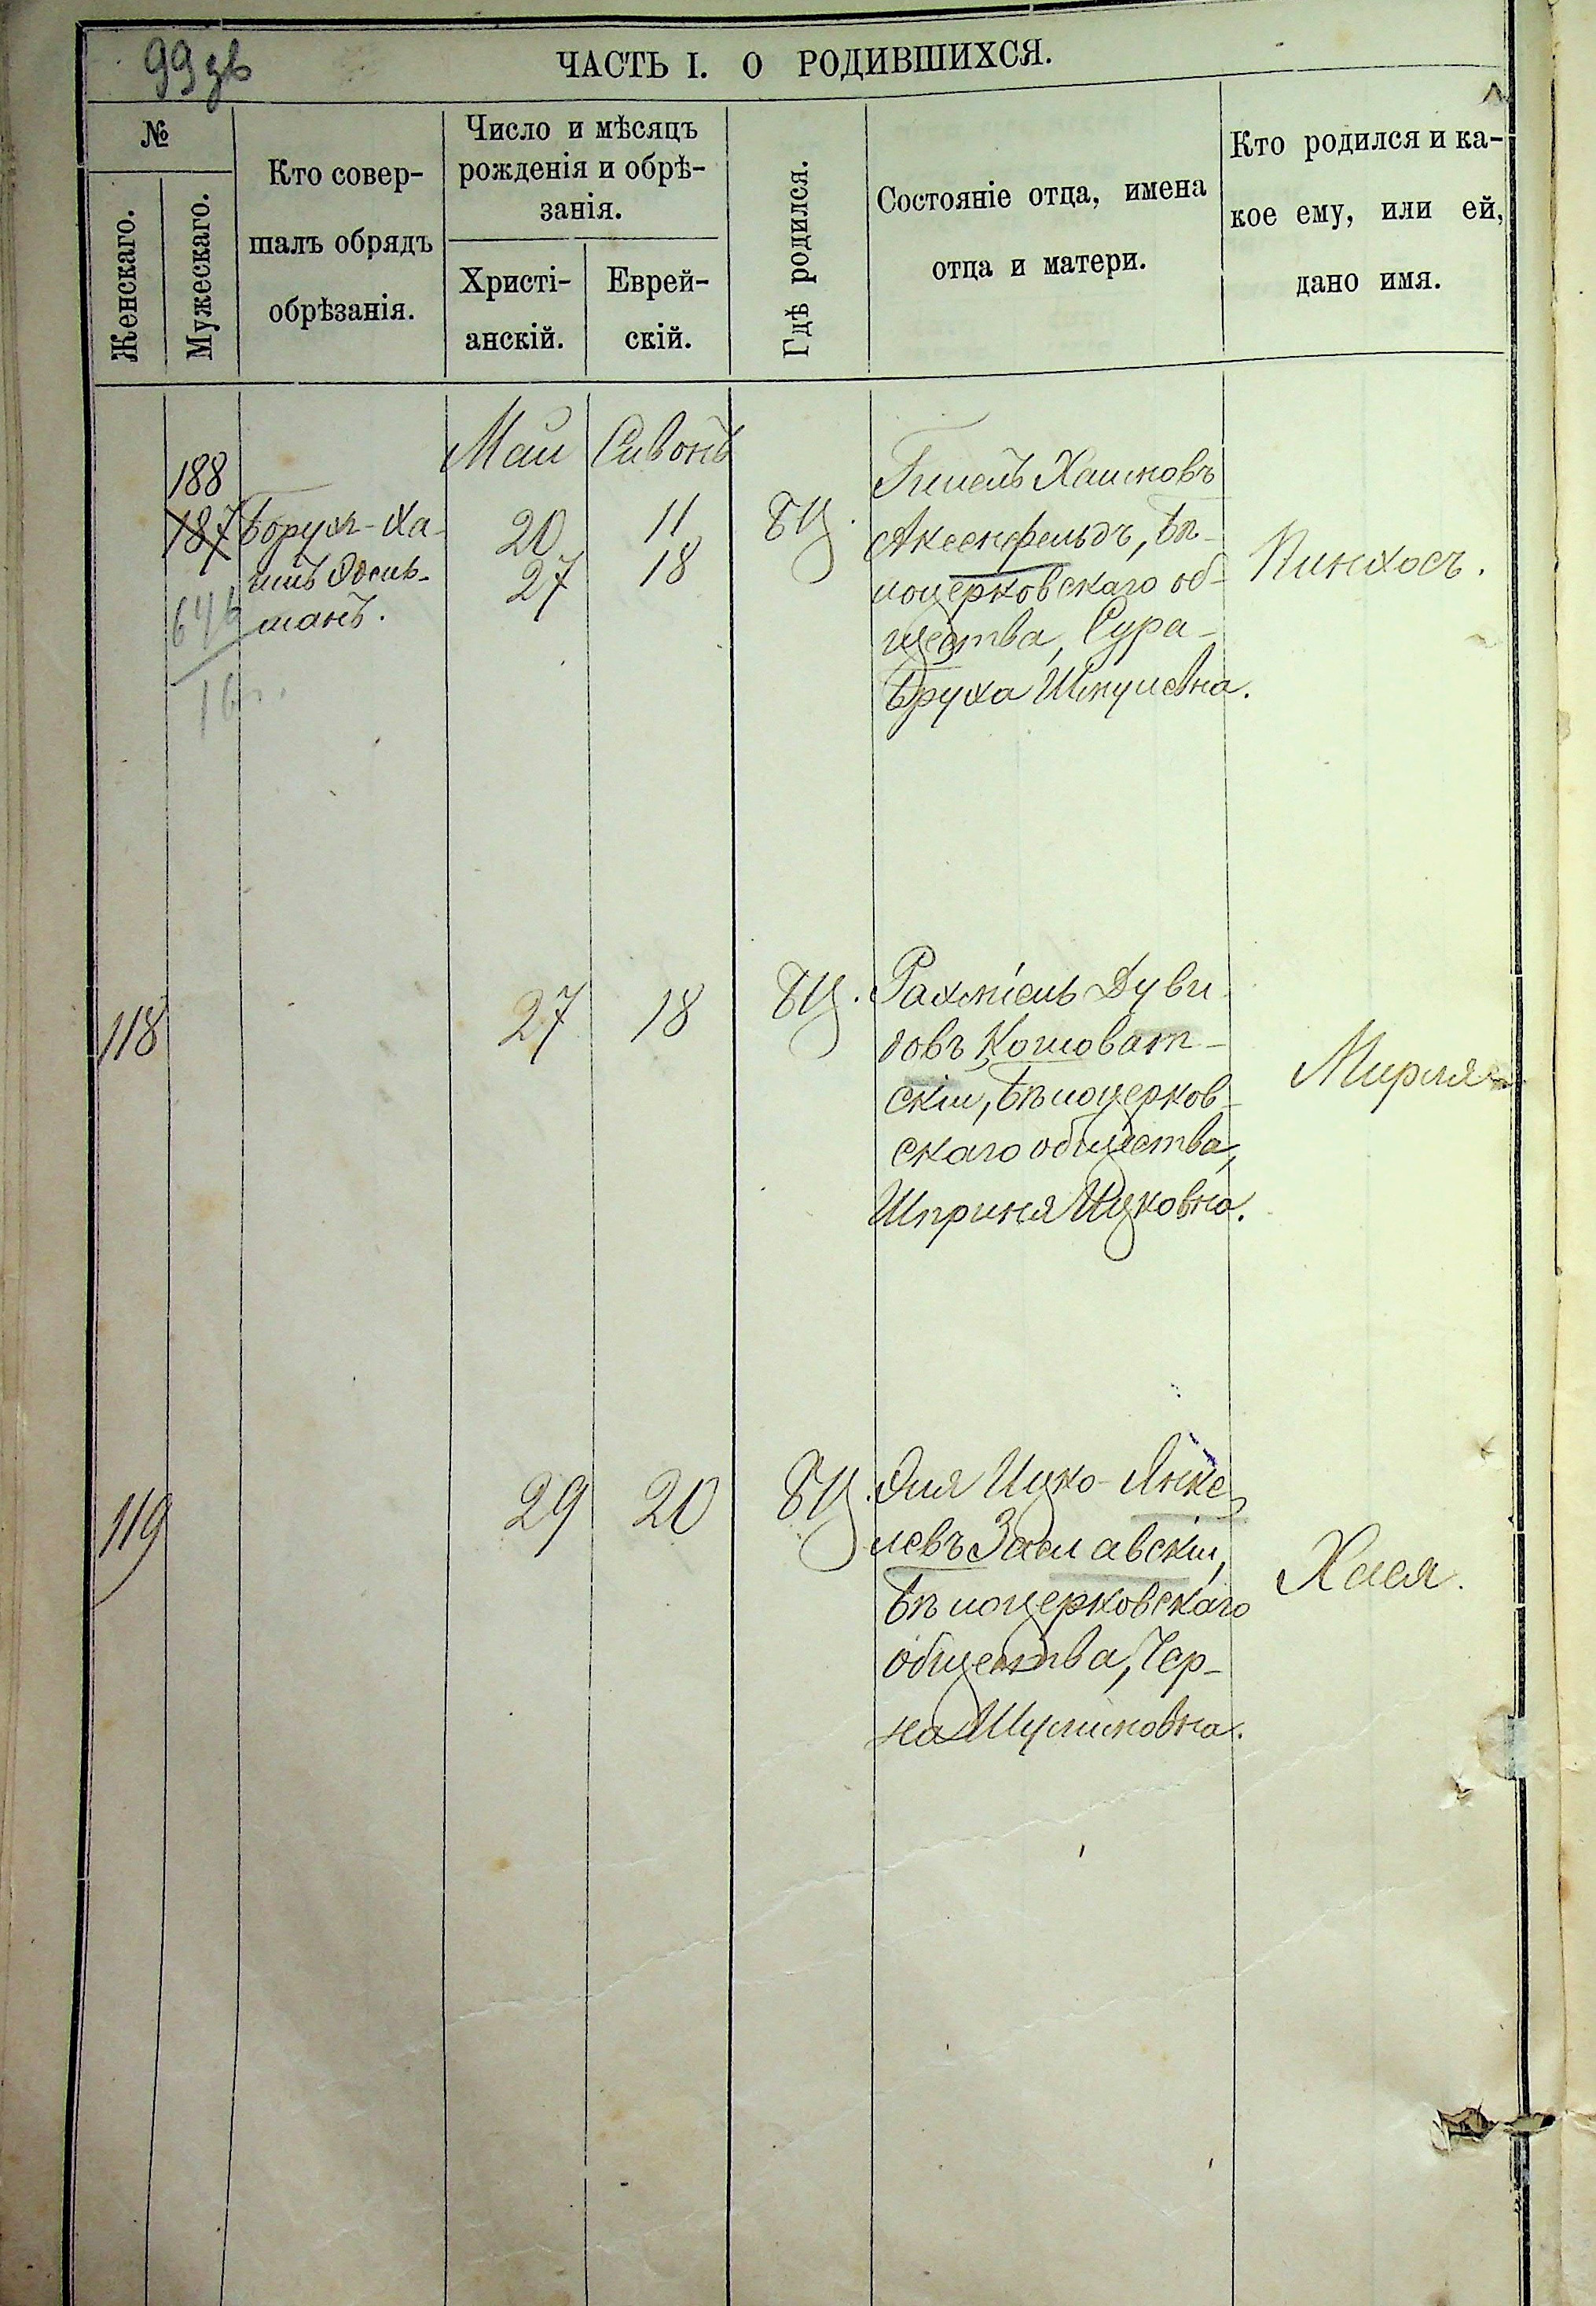 99 зв
ЧАСТЬ I. О РОДИВШИХСЯ.
№
Женскаго.
Мужескаго.
Кто совер-
шалъ обрядъ
обрѣзанія.
Число и мѣсяцъ
рожденія и обрѣ-
занія.
Христі-
анскій.
Еврей-
скій.
Гдѣ родился.
Состояніе отца, имена
отца и матери.
Кто родился и ка-
кое ему, или ей,
дано имя.
Май Сивонъ
188
187
Борухъ-Ха-
имъ Эдель-
манъ.
20 11
27 18
БЦ.
Гилель Хаимовъ
Аксенфельдъ, Бѣ-
лоцерковскаго об-
щества, Сура-
Бруха Шмулевна.
Пинхосъ.
118
27 18
БЦ.
Рахміель Дуви-
довъ Кошоват-
скій, Бѣлоцерков-
скаго общества,
Шприня Ицковна.
Мирля
119
29 20
БЦ.
Эля Ицко-Янке-
левъ Заславскій,
Бѣлоцерковскаго
общества, Чер-
на Шулимовна.
Хася.